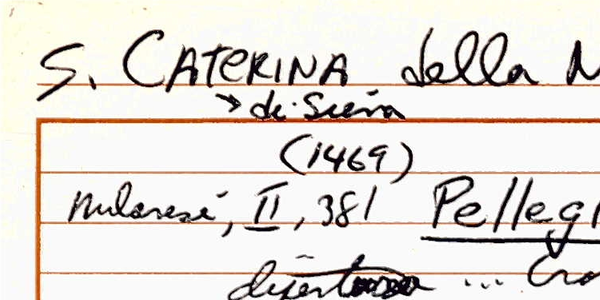 S. CATERINA della N
→ di Siena
(1469)
Milanesi, II, 381 Pelleg
... Cro